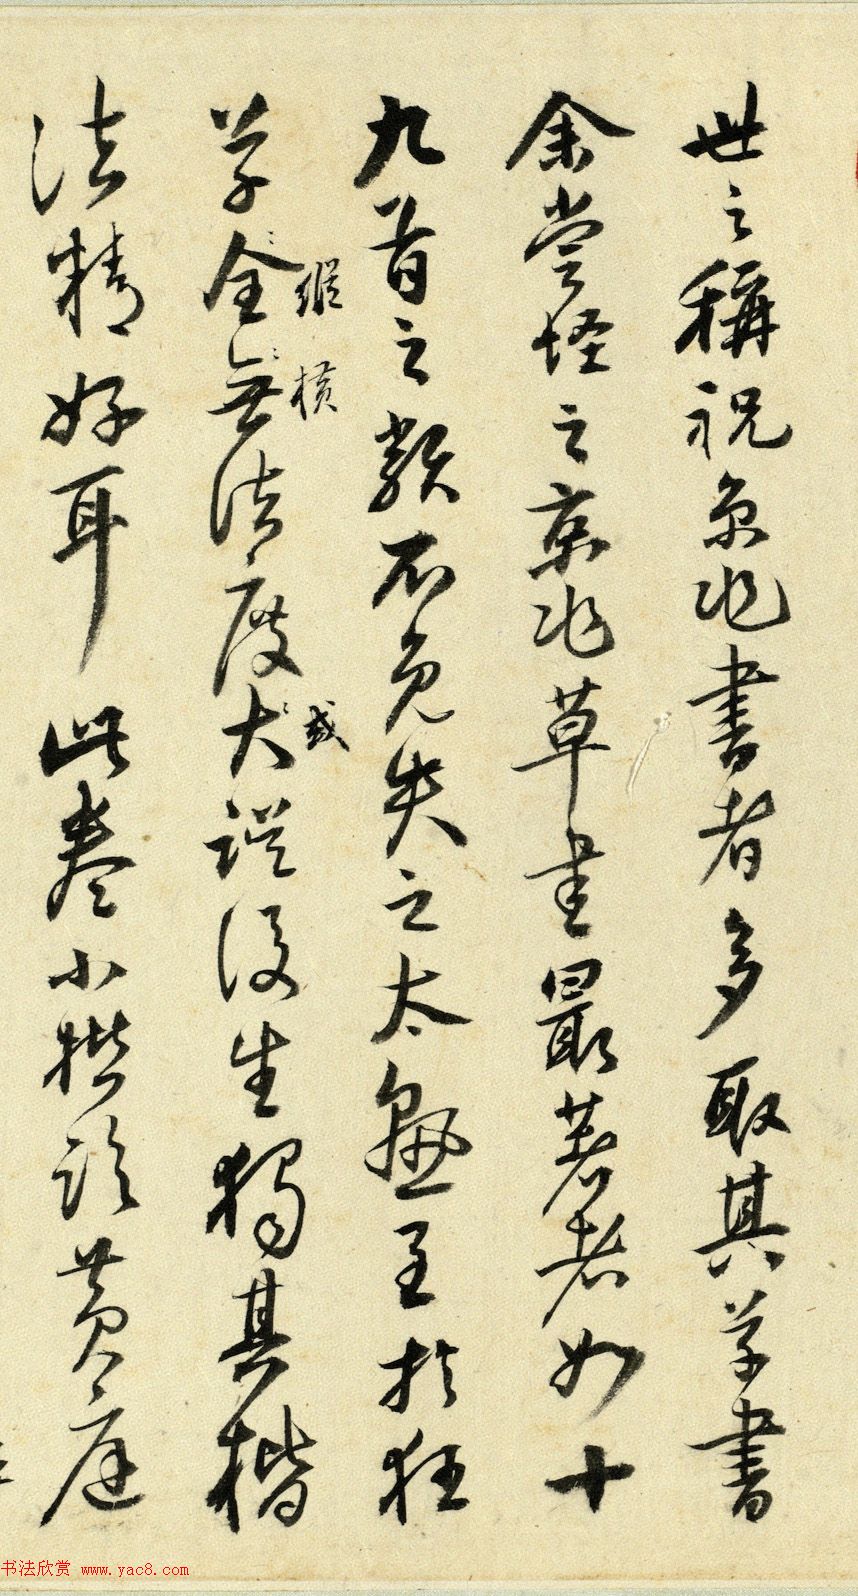 世之稱祝京兆書者多取其草書
余嘗怪之京兆草書最著者如十
九首之類不免失之太熟至於狂
縱橫 或
草全無法度大誤後生獨其楷
法精好耳此卷小楷臨黃庭
书法欣赏 www.yac8.com